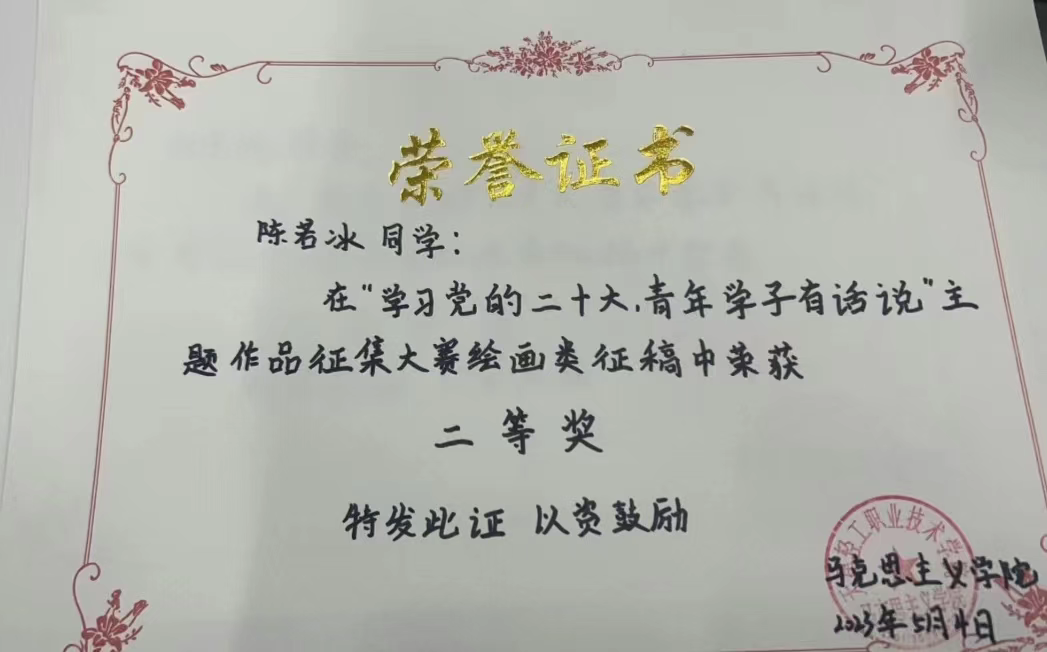 荣誉证书
陈若冰 同学:
在"学习党的二十大,青年学子有话说"主
题作品征集大赛绘画类征稿中荣获
二等奖
特发此证 以资鼓励
轻工职业技术学
马克思主义学院
2023年5月4日